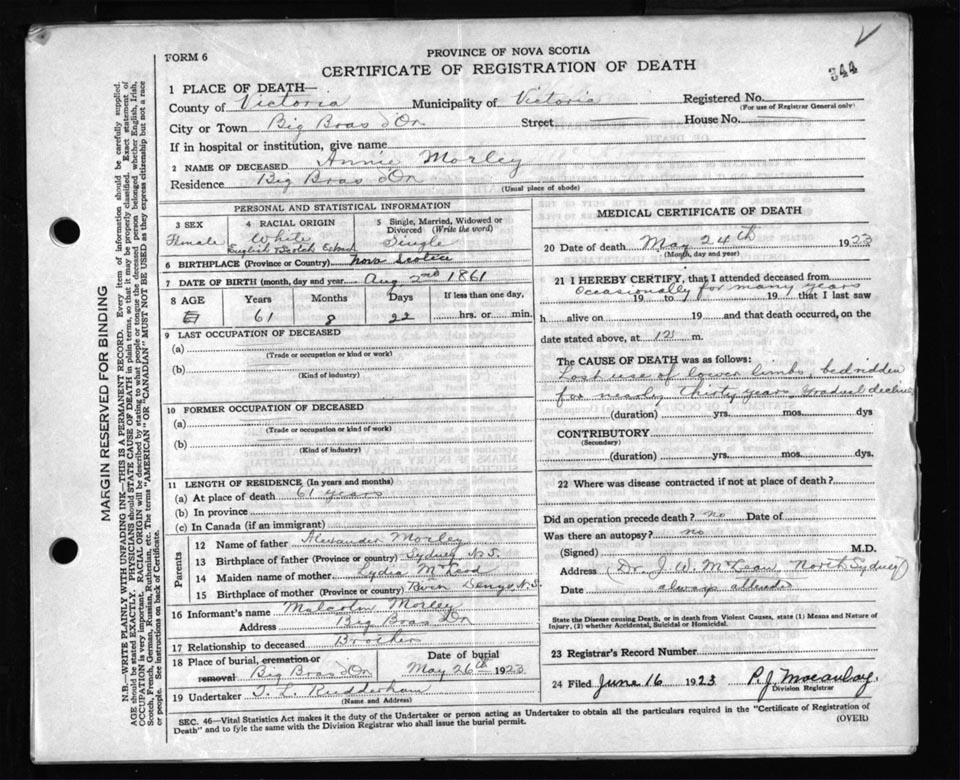 344
FORM 6
PROVINCE OF NOVA SCOTIA
CERTIFICATE OF REGISTRATION OF DEATH
1 PLACE OF DEATH—
County of Victoria Municipality of Victoria Registered No.
(For use of Registrar General only)
City or Town Big Bras d'Or Street House No.
If in hospital or institution, give name
2 NAME OF DECEASED Annie Morley
Residence Big Bras d'Or
(Usual place of abode)
PERSONAL AND STATISTICAL INFORMATION
3 SEX 4 RACIAL ORIGIN 5 Single, Married, Widowed or Divorced (Write the word)
Female White Single
English Scotch
6 BIRTHPLACE (Province or Country) Nova Scotia
7 DATE OF BIRTH (month, day and year) Aug 2nd 1861
8 AGE Years Months Days If less than one day,
61 8 22 hrs. or min.
9 LAST OCCUPATION OF DECEASED
(a)
(Trade or occupation or kind or work)
(b)
(Kind of industry)
10 FORMER OCCUPATION OF DECEASED
(a)
(Trade or occupation or kind or work)
(b)
(Kind of industry)
11 LENGTH OF RESIDENCE (In years and months)
(a) At place of death 61 years
(b) In province
(c) In Canada (if an immigrant)
Parents
12 Name of father Alexander Morley
13 Birthplace of father (Province or country) Sydney N.S.
14 Maiden name of mother Lydia McLeod
15 Birthplace of mother (Province or country) River Denys N.S.
16 Informant's name Malcolm Morley
Address Big Bras d'Or
17 Relationship to deceased Brother
18 Place of burial, cremation or removal Big Bras d'Or Date of burial May 26th 1923
19 Undertaker T. L. Rudderham
(Name and Address)
MEDICAL CERTIFICATE OF DEATH
20 Date of death May 24th 1923
(Month, day and year)
21 I HEREBY CERTIFY, that I attended deceased from
Occasionally for many years
19 to 19 that I last saw
h alive on 19 and that death occurred, on the
date stated above, at 12 m.
The CAUSE OF DEATH was as follows:
Lost use of lower limbs, bedridden
for nearly thirty years, Gradual decline
(duration) yrs. mos. dys
CONTRIBUTORY
(Secondary)
(duration) yrs. mos. dys.
22 Where was disease contracted if not at place of death?
Did an operation precede death? no Date of
Was there an autopsy? no
(Signed) M.D.
Address (Dr. J. W. McLean, North Sydney)
Date always attended
State the Disease causing Death, or in death from Violent Causes, state (1) Means and Nature of
Injury, (2) whether Accidental, Suicidal or Homicidal.
23 Registrar's Record Number
24 Filed June 16 1923 P. J. Macaulay.
Division Registrar
SEC. 46—Vital Statistics Act makes it the duty of the Undertaker or person acting as Undertaker to obtain all the particulars required in the "Certificate of Registration of
Death" and to fyle the same with the Division Registrar who shall issue the burial permit.
(OVER)
MARGIN RESERVED FOR BINDING
N.B.—WRITE PLAINLY WITH UNFADING INK—THIS IS A PERMANENT RECORD. Every item of information should be carefully supplied.
AGE should be stated EXACTLY. PHYSICIANS should STATE CAUSE OF DEATH in plain terms, so that it may be properly classified. Exact statement of
OCCUPATION is very important. RACIAL ORIGIN will be described by stating to what people or tongue the deceased person belonged whether English, Irish,
Scotch, French, German, Russian, Ruthenian, etc. The terms "AMERICAN" OR "CANADIAN" MUST NOT BE USED as they express citizenship but not a race
or people. See instructions on back of Certificate.